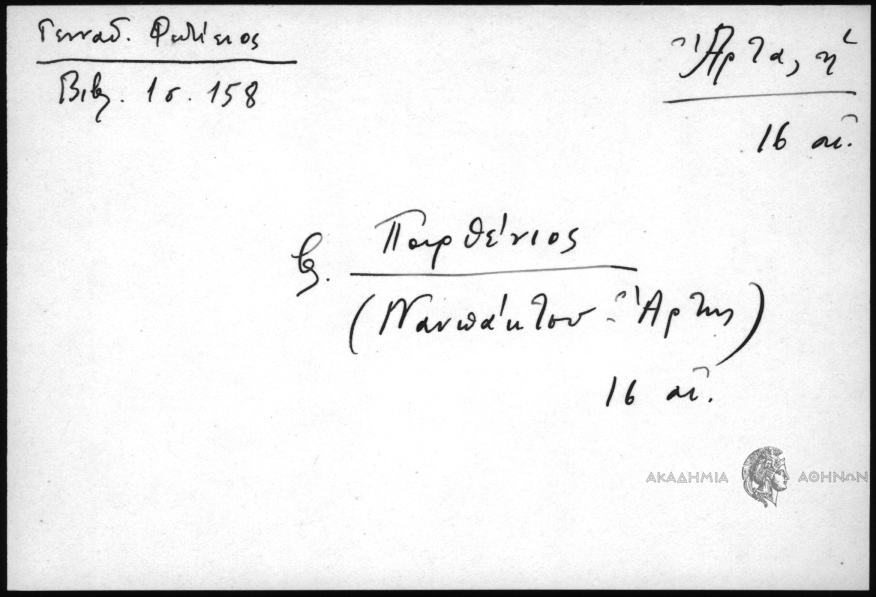 Γενναδ. Φωτίειος
Βιβ. 1 σ. 158
Ἄρτα, ἡ
16 αἰ.
β. Παρθένιος
(Ναυπάκτου - Ἄρτης)
16 αἰ.
ΑΚΑΔΗΜΙΑ ΑΘΗΝΩΝ